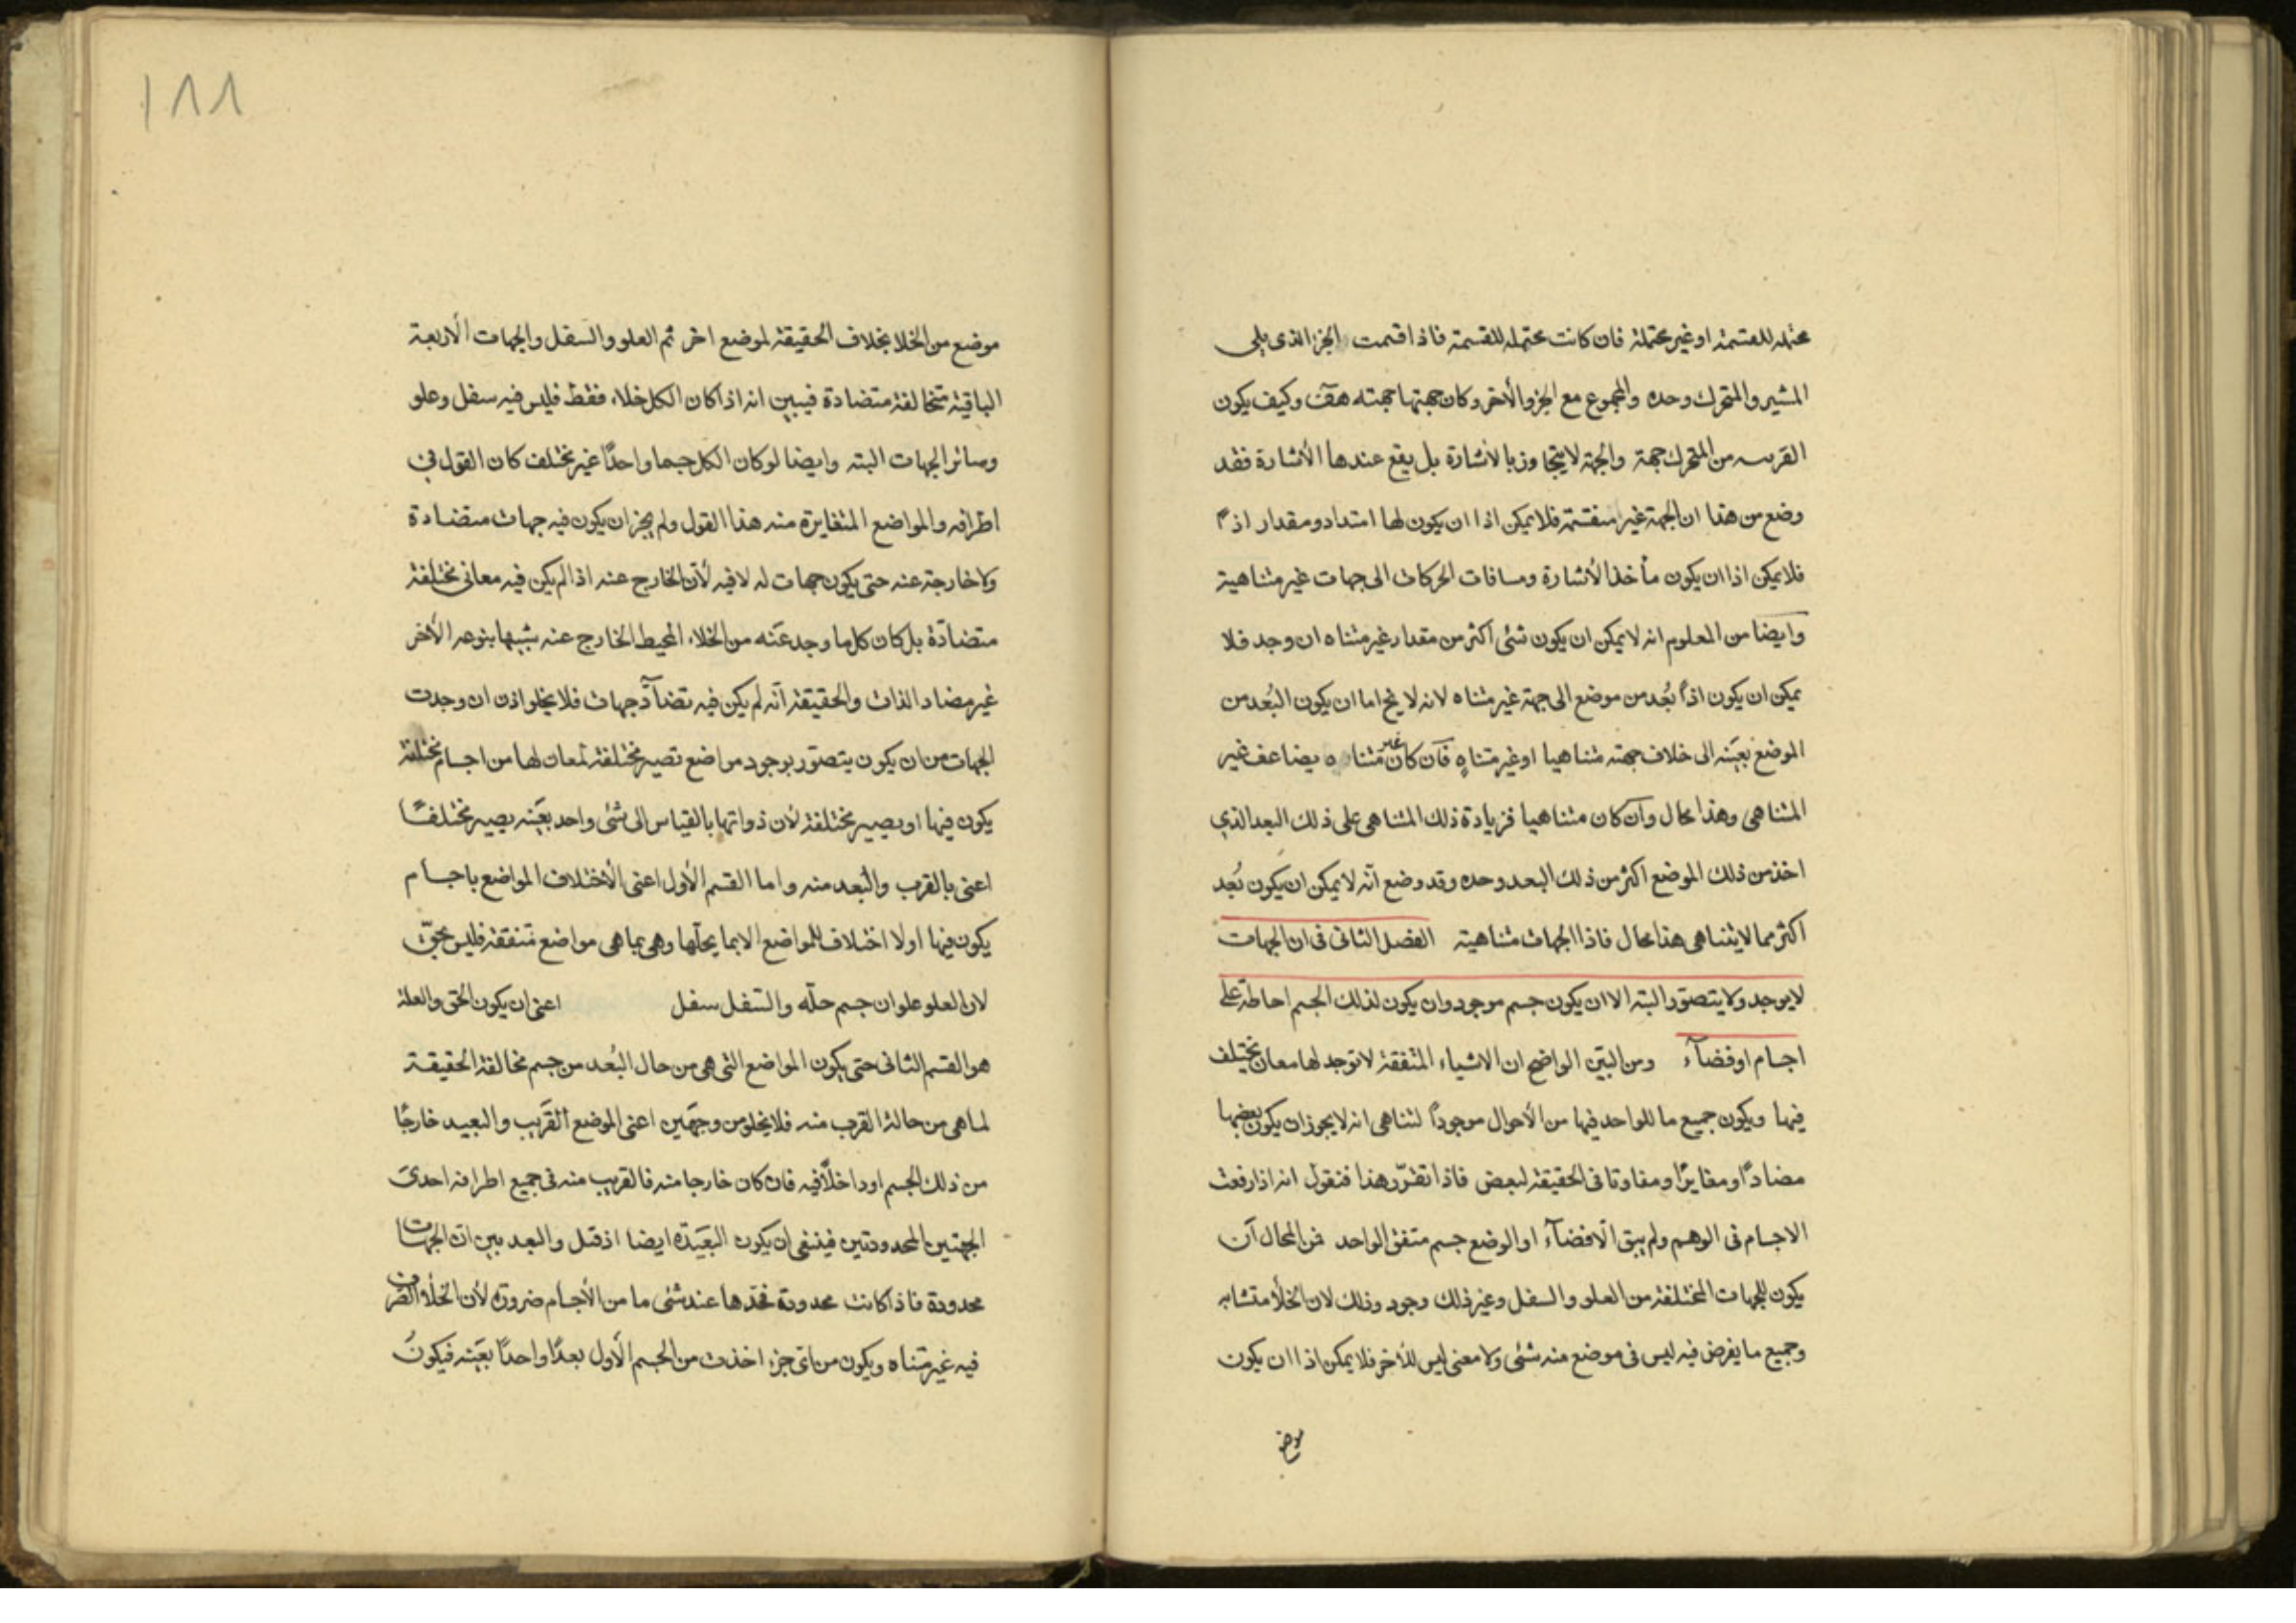 محتمله للقسمة او غير محتملة فان كانت محتمله للقسمة فاذا اقسمت الجزء الذى يلى
المشير والمتحرك وحده والمجموع مع الجزو الأخر وكان جهتها جهته هف وكيف يكون
القرب من المتحرك جهة والجهة لا يتجاوز بالاشارة بل يقع عندها الأشارة فقد
وضع من هذا ان الجهة غير منقسمة فلا يمكن اذا ان يكون لها امتداد ومقدار
فلا يمكن اذا ان يكون مأخذ الأشارة ومسافات الحركات الى جهات غير متناهية
وايضا من المعلوم انه لا يمكن ان يكون شئى اكثر من مقدار غير متناه ان وجد فلا
يمكن ان يكون اذاً بُعد من موضع الى جهة غير متناه لانه لا يخ اما ان يكون البُعد من
الموضع بعَينه الى خلاف جهته متناهيا او غير متناهٍ فآن كان غير متناه يضاعف غير
المتناهى وهذا محال وآن كان متناهيا فزيادة ذلك المتناهى على ذلك البعد الذي
اخذ من ذلك الموضع اكثر من ذلك البعد وحده وقد وضع انّه لا يمكن ان يكون بُعد
اكثر مما لا يتناهى هذا محال فاذا الجهات متناهية الفصل الثانى فى ان الجهات
لا يوجد ولا يتصوّر البته الا ان يكون جسم موجود وان يكون لذلك الجسم احاطة على
اجسام او فضآء ومن البيّن الواضح ان الاشياء المتفقة لا توجد لها معان تختلف
فيها ويكون جميع ما للواحد فيها من الأحوال موجوداً لتناهى انه لا يجوز ان يكون بعضها
مضاداً او مغايرًا ومفاوتا فى الحقيقة لبعض فاذا تقرّر هذا فنقول انه اذا رفعت
الاجسام فى الوهم ولم يبق الّا فضآء او الوضع جسم متفق الواحد فمن المحال آن
يكون للجهات المختلفة من العلو والسفل وغير ذلك وجود وذلك لان الخلأ متشابه
وجميع ما يفرض فيه ليس فى موضع منه شئى ولا معنى ليس للأخر فلا يمكن اذا ان يكون
موضع
١٨٨
موضع من الخلا بخلاف الحقيقة لموضع اخر ثم العلو والسفل والجهات الأربعة
الباقية متخالفة متضادة فيبين انه اذا كان الكل خلاء فقط فليس فيه سفل وعلو
وسائر الجهات البته وايضا لو كان الكل جسما واحدًا غير مختلف كان القول فى
اطرافه والمواضع المتغايرة منه هذا القول ولم يجز ان يكون فيه جهات متضادة
ولا خارجة عنه حتى يكون جهات له لا فيه لأن الخارج عنه اذا لم يكن فيه معانى مختلفة
متضادّة بل كان كل ما وجد عَنه من الخلاء المحيط الخارج عنه شبيها بنوعه الأخر
غير مضاد الذات والحقيقة انّه لم يكن فيه تضآدّ جهات فلا يخلو اذن ان وجدت
الجهات من ان يكون يتصوّر بوجود مواضع تصير مختلفة لمعان لها من اجسام مختلفة
يكون فيها او يصير مختلفة لأن ذواتها بالقياس الى شئى واحد بعَينه يصير مختلفًا
اعنى بالقرب والبعد منه واما القسم الأول اعنى الأختلاف المواضع باجسام
يكون فيها اولا اختلاف للمواضع الا بما يحلّها وهى بما هى مواضع متفقة فليس بحقّ
لان العلو علو ان جسم حلّه والسّفل سفل اعنى ان يكون الحق والعلة
هو القسم الثانى حتى يكون المواضع التى هى من حال البُعد من جسم مخالفة الحقيقة
لما هى من حالة القرب منه فلا يخلو من وجهَين اعنى الموضع القَريب والبعيد خارجًا
من ذلك الجسم او داخلاً فيه فان كان خارجا منه فالقريب منه فى جميع اطرافه احدى
الجهتين المحدودتين فينبغى ان يكون البعَيدة ايضا اذ قبل والبعد بين ان الجهات
محدودة فاذا كانت محدودة فحدّها عند شئى ما من الأجسام ضرورة لأن الخلأ الصرف
فيه غير متناه ويكون من اى جزء اخذت من الجسم الأول بعدًا واحدًا بعَينه فيكونُ